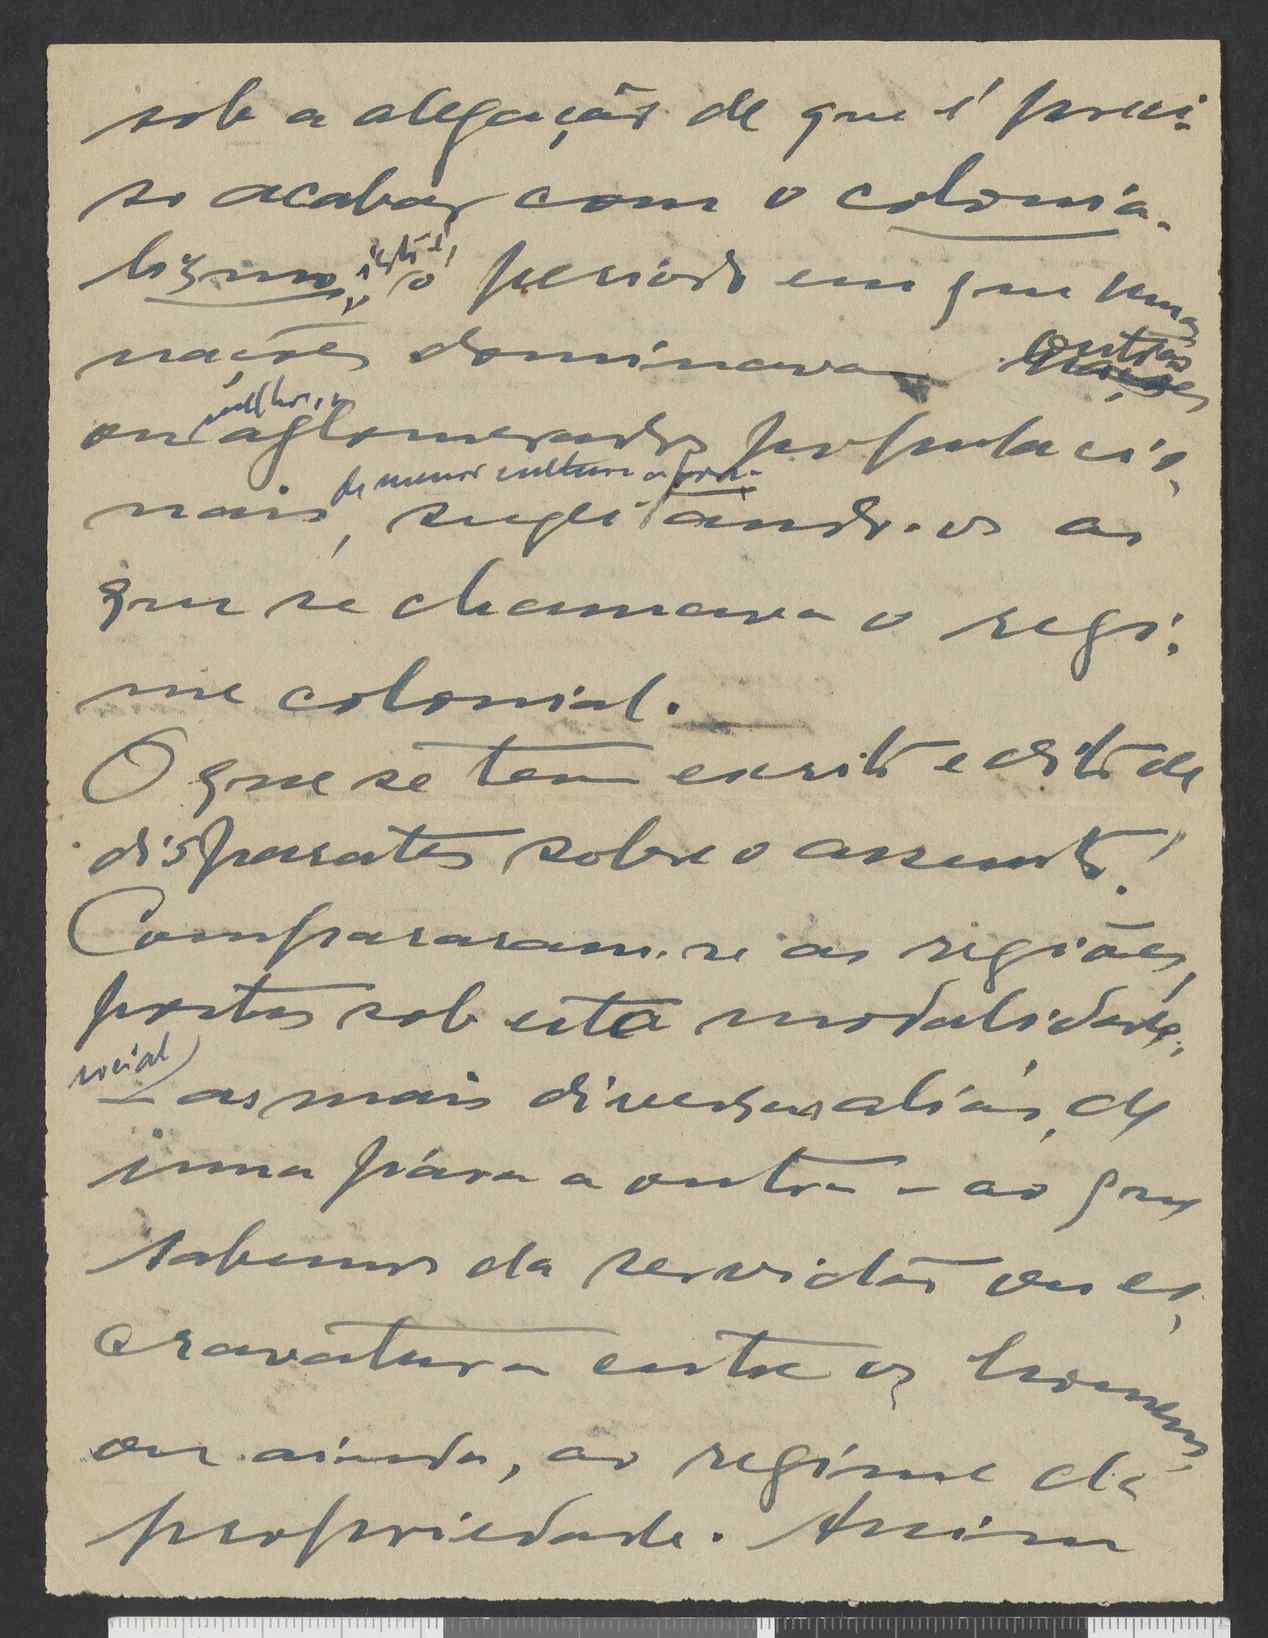 sob a alegação de que é preci-
so acabar com o colonia-
lismo, isto é, o período em que umas
nações dominavam outras
ou aglomerados populacio-
de menor cultura
nais, sugeitando-os ao
que se chamava o regi-
me colonial.
O que se tem escrito e dito de
disparates sobre o assunto!
Compararam-se as regiões,
postas sob esta modalidade
social
– as mais diversas aliás, de
uma pára a outra – ao que
sabemos da servidão ou es-
cravatura entre os homens,
ou ainda, ao regime da
propriedade. Assim